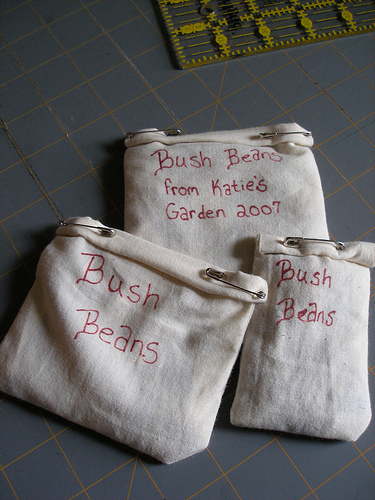 Bush Beans
from Katie's
Garden 2007
Bush
Beans
Bush
Beans